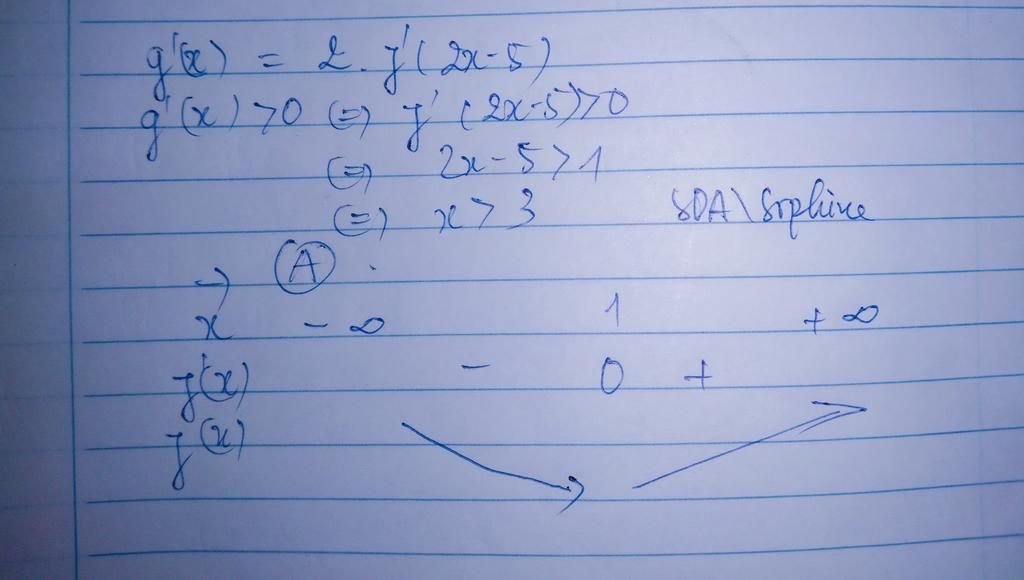 g'(x) = 2. f'(2x-5)
g'(x) >0 (=) f' (2x-5)>0
(=) 2x-5>1
(=) x>3 SDA\Srphine
→ (A) .
x -∞ 1 +∞
f'(x) - 0 +
f(x)